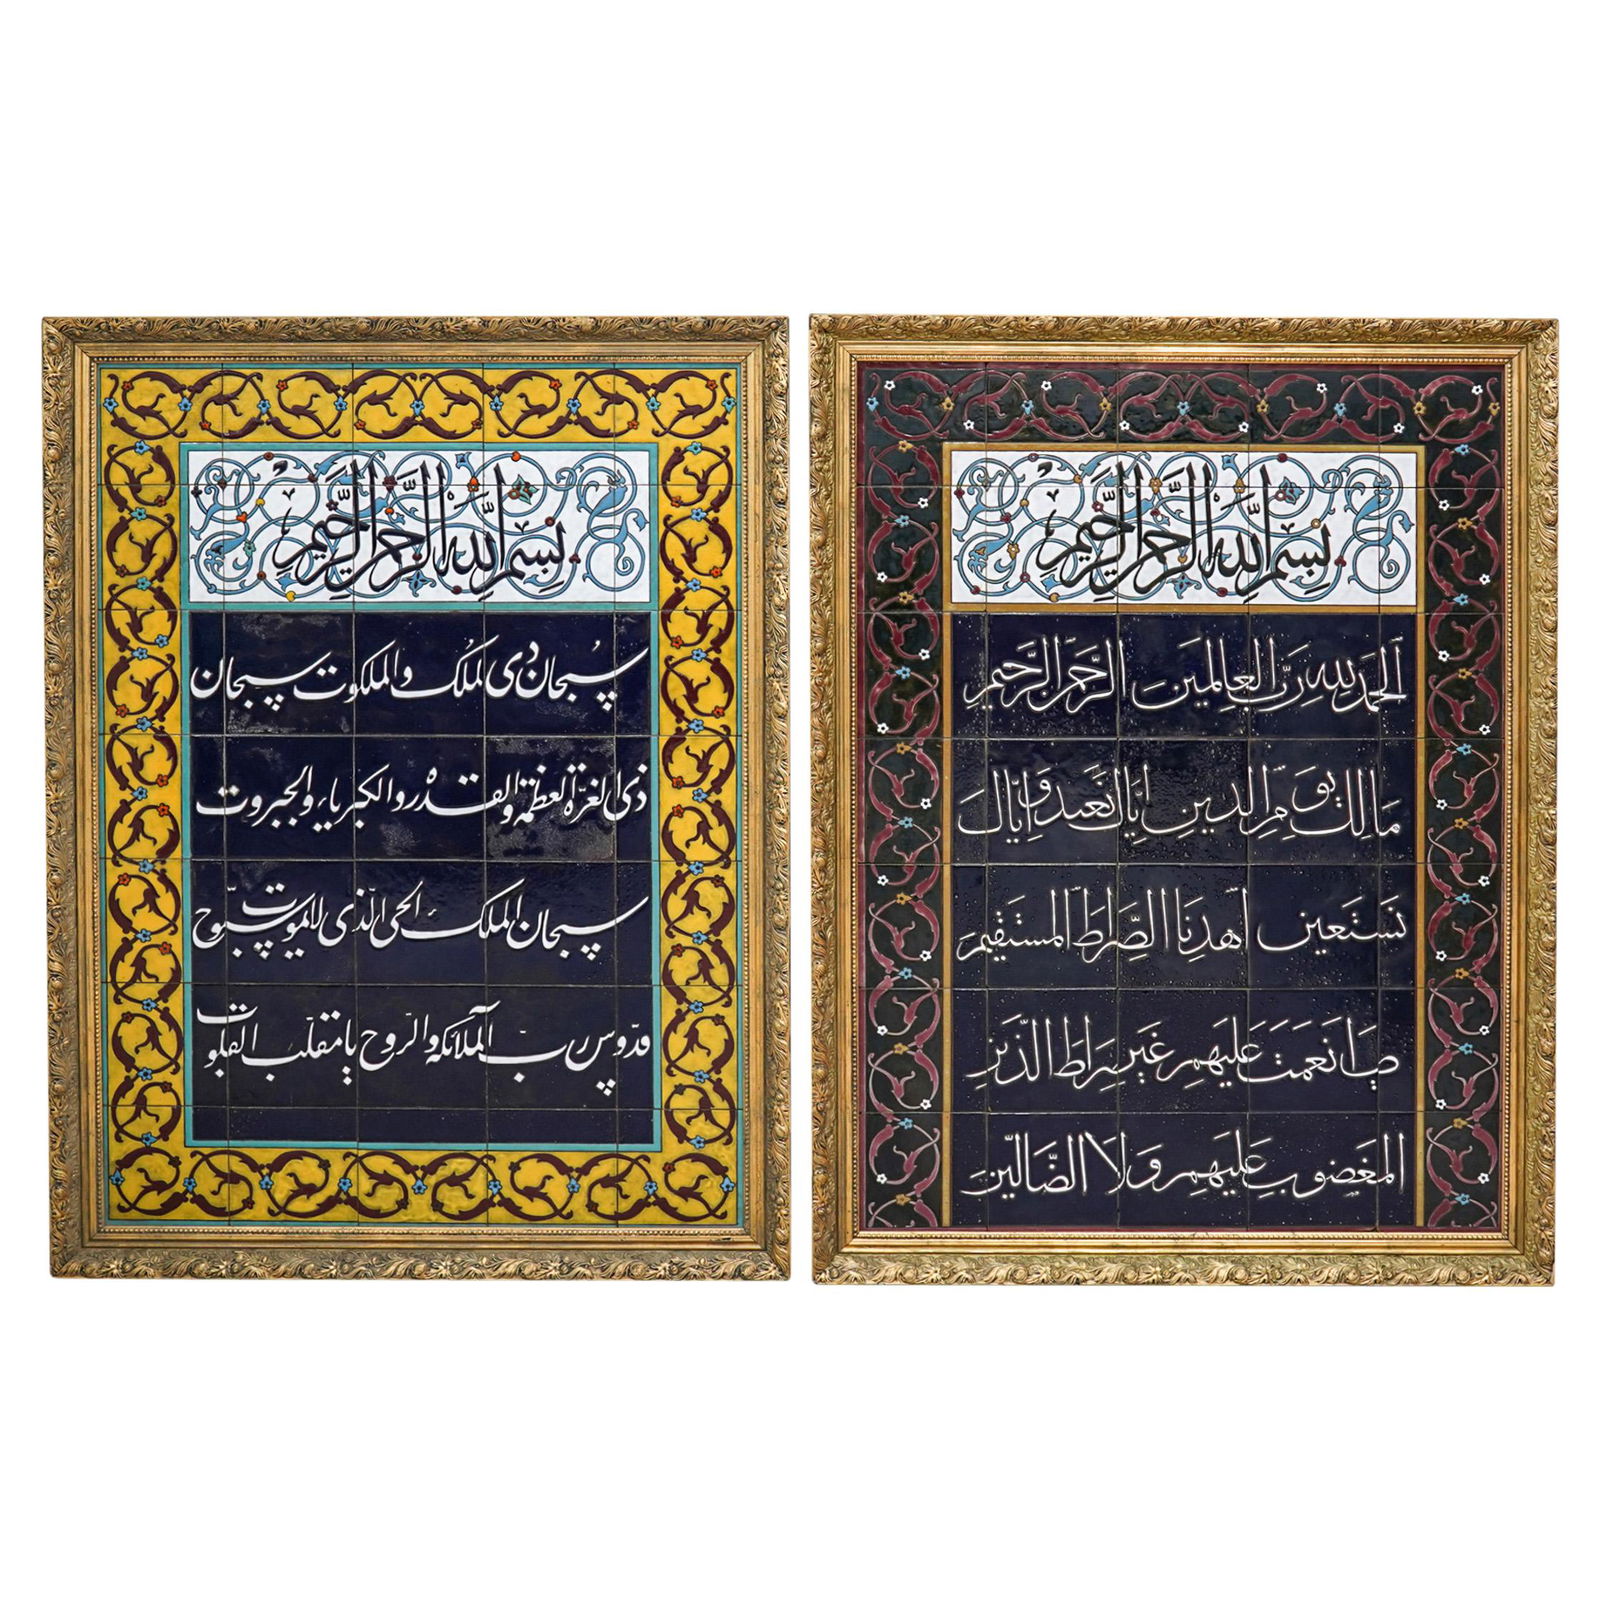 بِسْمِ اللهِ الرَّحْمنِ الرَّحِيمِ
سبحان ذی الملک والملکوت سبحان
ذی العزّة العظمة والقدرو الکبریاء والجبروت
سبحان الملک الحی الّذی لایموت سبّوح
قدّوس ربّ الملائکه والرّوح یا مقلّب القلوب
بِسْمِ اللهِ الرَّحْمنِ الرَّحِيمِ
اَلحمدُ لله رَبِّ العالمينَ الرَّحمنِ الرَّحيمِ
مَالِكِ يَومِ الدينِ اِيَّاكَ نَعبدُ وَاِيّاكَ
نَستَعينِ اهدِنَا الصِّرَاطَ المستَقيمَ
صِ انعَمتَ عَليهِم غَيرِ راطَ الذّينَ
المَغضوبِ عَليهِم وَلاَ الضَّالّينَ